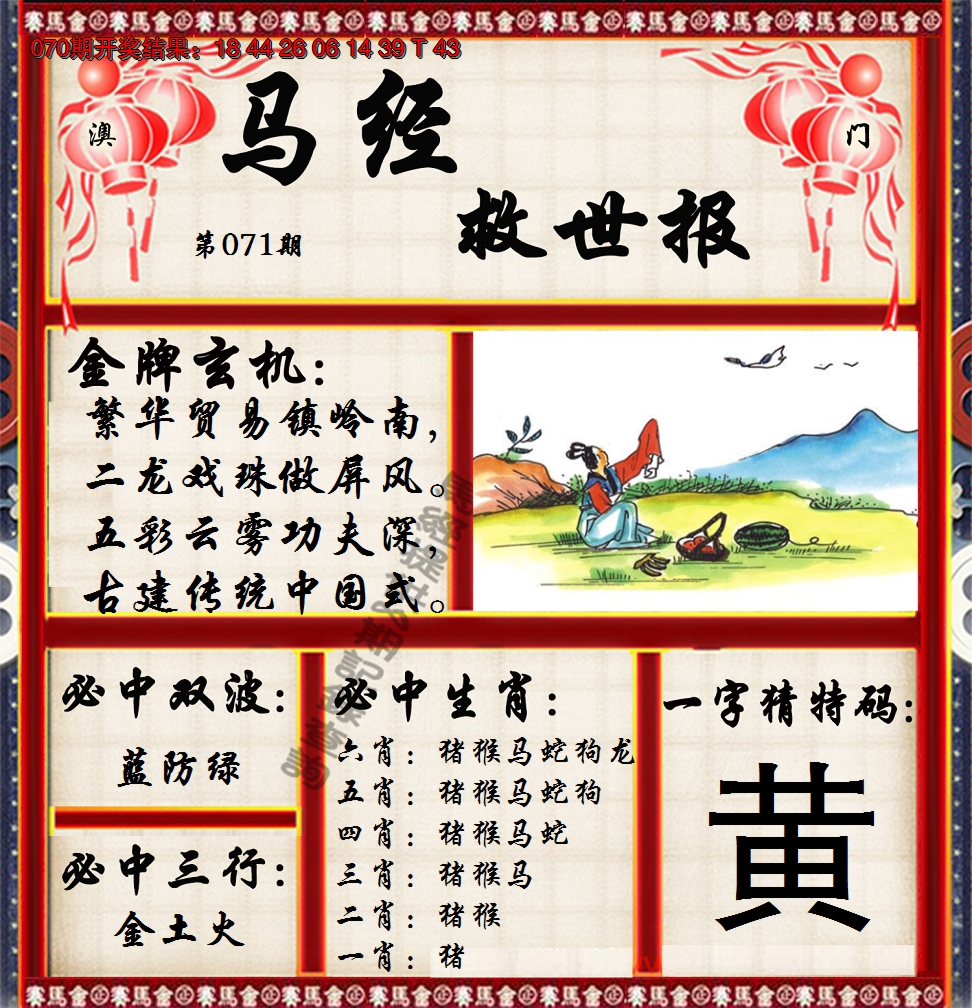 070期开奖结果：18 44 26 06 14 39 T 43
澳
门
马经
救世报
第071期
金牌玄机：
繁华贸易镇岭南，
二龙戏珠做屏风。
五彩云雾功夫深，
古建传统中国式。
必中双波：
蓝防绿
必中三行：
金土火
必中生肖：
六肖：猪猴马蛇狗龙
五肖：猪猴马蛇狗
四肖：猪猴马蛇
三肖：猪猴马
二肖：猪猴
一肖：猪
一字猜特码：
黄